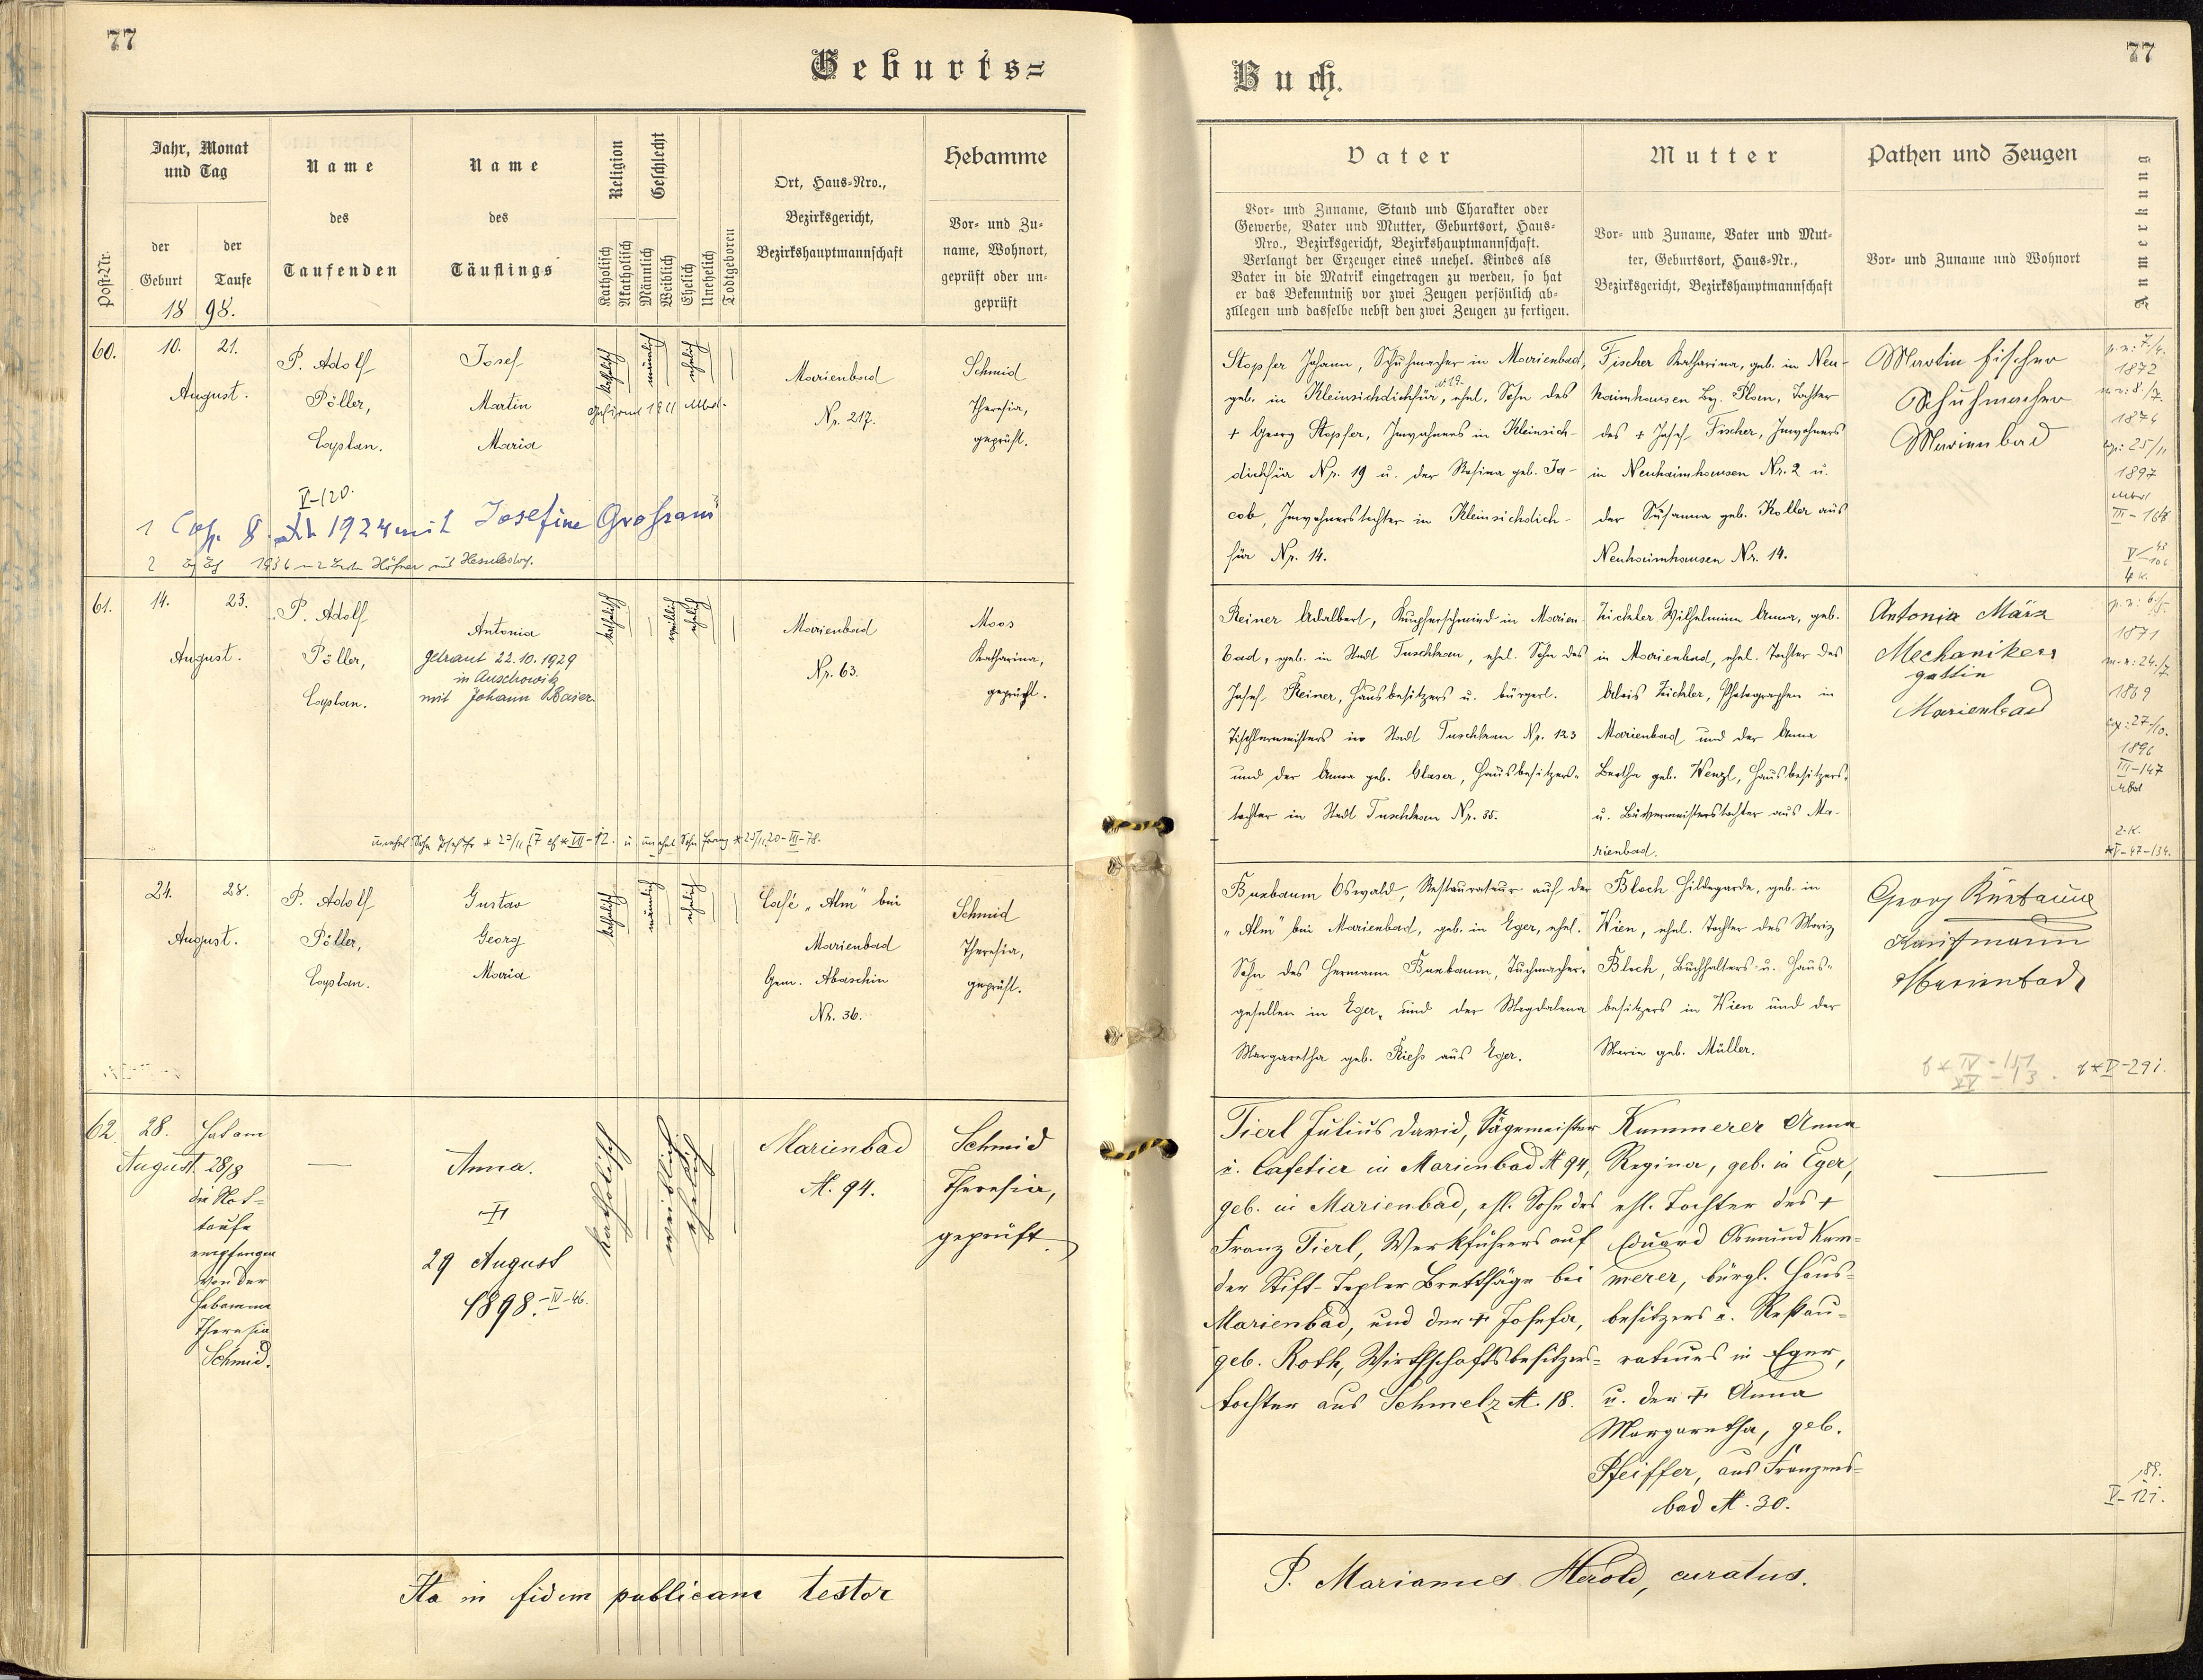 77
Geburts=
Post-Nr.
Jahr, Monat
und Tag
der
Geburt
der
Taufe
18 98.
Name
des
Taufenden
Name
des
Täuflings
Religion
Katholisch
Akatholisch
Geschlecht
Männlich
Weiblich
Ehelich
Unehelich
Todtgeboren
Ort, Haus-Nro.,
Bezirksgericht,
Bezirkshauptmannschaft
Hebamme
Vor- und Zu-
name, Wohnort,
geprüft oder un-
geprüft
60.
10. 21.
August.
P. Adolf
Pöller,
Caplan.
Josef
Martin
Maria
katholisch
männlich
ehelich
Gefirmt 1911 Mbd.
Marienbad
Nr. 217.
Schmid
Theresia,
geprüft.
V-120.
1 Cop. 8. 1924 mit Josefine
2 1936
61.
14. 23.
August.
P. Adolf
Pöller,
Caplan.
Antonia
getraut 22.10.1929
in Auschowitz
mit Johann Baier.
katholisch
weiblich
ehelich
Marienbad
Nr. 63.
Moos
Katharina,
geprüft.
24. 28.
August.
P. Adolf
Pöller,
Caplan.
Gustav
Georg
Maria
katholisch
männlich
ehelich
Café „Alm" bei
Marienbad
Gem. Abaschin
Nr. 36.
Schmid
Theresia,
geprüft.
62.
28.
August.
Hat am
28/8
die Not-
taufe
empfangen
von der
Hebamme
Theresia
Schmid.
—
Anna.
†
29 August
1898. -IV-46.
katholisch
weiblich
ehelich
Marienbad
N. 94.
Schmid
Theresia,
geprüft.
Ita in fidem publicam testor
77
Buch.
Vater
Vor- und Zuname, Stand und Charakter oder
Gewerbe, Vater und Mutter, Geburtsort, Haus-
Nro., Bezirksgericht, Bezirkshauptmannschaft.
Verlangt der Erzeuger eines unehel. Kindes als
Vater in die Matrik eingetragen zu werden, so hat
er das Bekenntniß vor zwei Zeugen persönlich ab-
zulegen und dasselbe nebst den zwei Zeugen zu fertigen.
Mutter
Vor- und Zuname, Vater und Mut-
ter, Geburtsort, Haus-Nr.,
Bezirksgericht, Bezirkshauptmannschaft
Pathen und Zeugen
Vor- und Zuname und Wohnort
Anmerkung
Stopfer Johann, Schuhmacher in Marienbad,
geb. in Kleinsichdichfür, N. 19. ehel. Sohn des
+ Georg Stopfer, Inwohners in Kleinsich-
dichfür Nr. 19 u. der Rosina geb. Ja-
cob, Inwohnerstochter in Kleinsichdich-
für Nr. 14.
Fischer Katharina, geb. in Neu-
haimhausen Bez. Plan, Tochter
des + Josef Fischer, Inwohners
in Neuhaimhausen Nr. 2 u.
der Susanna geb. Koller aus
Neuhaimhausen Nr. 14.
Martin Fischer
Schuhmacher
Marienbad
1872
1874
cop: 25/11
1897
Mbd
III-168
4 K.
Reiner Adalbert, Kupferschmied in Marien-
bad, geb. in Stadt Tuschkau, ehel. Sohn des
Josef Reiner, Hausbesitzers u. bürgerl.
Tischlermeisters in Stadt Tuschkau Nr. 123
und der Anna geb. Glaser, Hausbesitzers-
tochter in Stadt Tuschkau Nr. 35.
Zickler Wilhelmine Anna, geb.
in Marienbad, ehel. Tochter des
Alois Zickler, Photographen in
Marienbad und der Anna
Bertha geb. Wenzl, Hausbesitzers-
u. Bäckermeisterstochter aus Ma-
rienbad.
Antonia März
Mechanikers
gattin
Marienbad
1871
1869
cop: 27/10.
1896
III-147
Mbd
2. K.
Buxbaum Oswald, Restaurateur auf der
„Alm" bei Marienbad, geb. in Eger, ehel.
Sohn des Hermann Buxbaum, Tuchmacher-
gesellen in Eger, und der Magdalena
Margaretha geb. Rieß aus Eger.
Bloch Hildegarde, geb. in
Wien, ehel. Tochter des Moriz
Bloch, Buchhalters u. Haus-
besitzers in Wien und der
Marie geb. Müller.
Georg
Kaufmann
Marienbad
Tierl Julius David, Sägemeister
u. Cafetier in Marienbad N 94,
geb. in Marienbad, ehl. Sohn des
Franz Tierl, Werkführers auf
der Stift-Tepler Brettsäge bei
Marienbad, und der † Josefa,
geb. Roth, Wirthschaftsbesitzers-
tochter aus Schmelz N. 18.
Kummerer Anna
Regina, geb. in Eger,
ehl. Tochter des †
Eduard Osmund Kum-
merer, bürgl. Haus-
besitzers u. Restau-
rateurs in Eger,
u. der † Anna
Margaretha, geb.
Pfeiffer, aus Franzens-
bad N. 30.
—
V-121.
P. Marianus Herold, curatus.